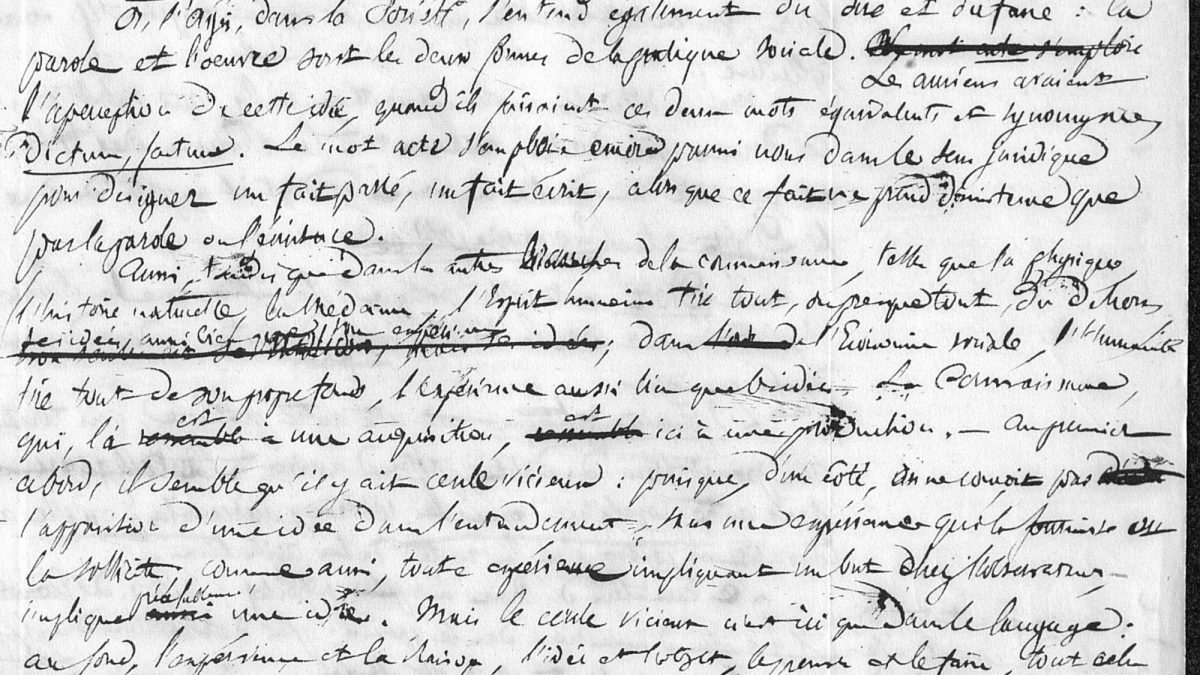 Or, l'agir, dans la Société, s'entend également du dire et du faire : la
parole et l'oeuvre sont les deux formes de la pratique sociale. Le mot acte s'emploie
Les anciens avaient
l'aperception de cette idée, quand ils faisaient ces deux mots équivalents et synonymes,
Dictum, factum. Le mot acte s'emploie encore parmi nous dans le sens juridique
pour désigner un fait passé, un fait écrit, alors que ce fait ne prend d'existence que
par la parole ou l'écriture.
Aussi, tandis que dans les autres branches de la connaissance, telles que la physique,
l'histoire naturelle, la médecine, l'Esprit humain tire tout, ou presque tout, du dehors,
ses idées, aussi bien que son expérience
; dans de l'Economie sociale, l'Humanité
tire tout de son propre fonds, l'expérience aussi bien que les idées. La Connaissance,
est est
qui, là semble à une acquisition, semble ici à une production. — Au premier
abord, il semble qu'il y ait cercle vicieux : puisque, d'un côté, on ne conçoit pas
l'apparition d'une idée dans l'entendement, sans une expérience qui la fournisse et
la sollicite, comme aussi, toute expérience impliquant un but chez l'observateur,
préalablement
implique aussi une idée. Mais le cercle vicieux n'est ici que dans le langage :
au fond, l'expérience et la raison, l'idée et l'objet, la pensée et le faire, tout cela